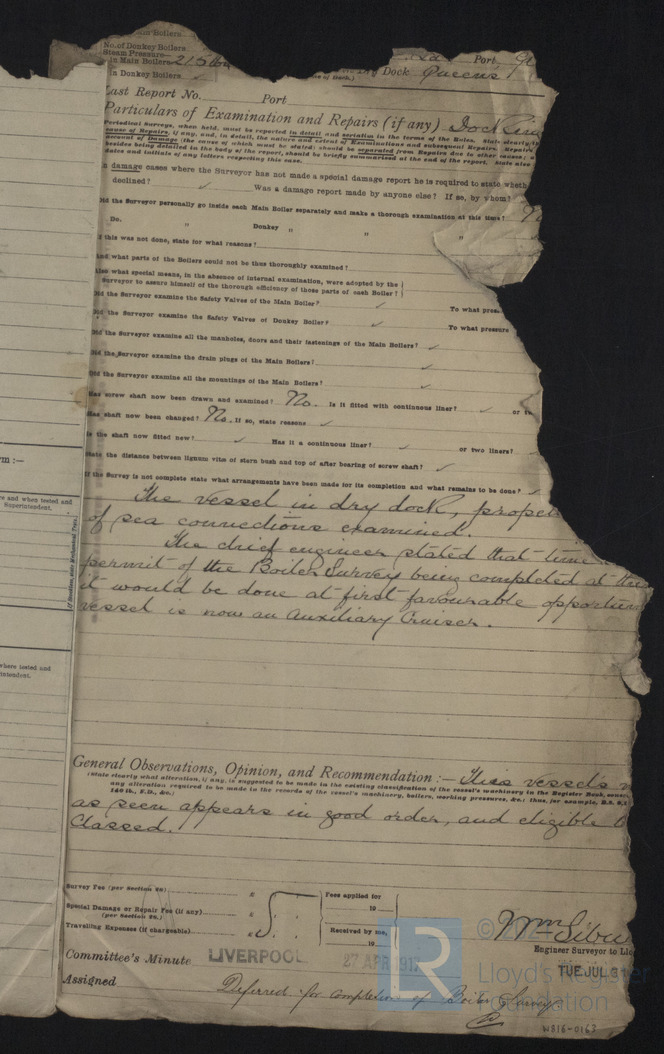 Main Boilers
No. of Donkey Boilers
Steam Pressure—
in Main Boilers 215 lb
in Donkey Boilers ✓
Port
Dry Dock Queens
Last Report No. Port
Particulars of Examination and Repairs (if any) Docking
Periodical Surveys, when held, must be reported in detail and seriatim in the terms of the Rules. State clearly
cause of Repairs, if any, and, in detail, the nature and extent of Examinations and subsequent Repairs. Repairs
account of Damage (the cause of which must be stated) should be separated from Repairs due to other causes;
besides being detailed in the body of the report, should be briefly summarised at the end of the report. State also
dates and initials of any letters respecting this case.
In damage cases where the Surveyor has not made a special damage report he is required to state wheth
declined? ✓ Was a damage report made by anyone else? If so, by whom?
Did the Surveyor personally go inside each Main Boiler separately and make a thorough examination at this time?
Do. " Donkey " " "
If this was not done, state for what reasons?
And what parts of the Boilers could not be thus thoroughly examined?
Also what special means, in the absence of internal examination, were adopted by the
Surveyor to assure himself of the thorough efficiency of those parts of each Boiler?
Did the Surveyor examine the Safety Valves of the Main Boiler? ✓ To what pres
Did the Surveyor examine the Safety Valves of Donkey Boiler? ✓ To what pressure
Did the Surveyor examine all the manholes, doors and their fastenings of the Main Boilers? ✓
Did the Surveyor examine the drain plugs of the Main Boilers? ✓
Did the Surveyor examine all the mountings of the Main Boilers? ✓
Has screw shaft now been drawn and examined? No. Is it fitted with continuous liner? ✓ or
Has shaft now been changed? No. If so, state reasons ✓
Is the shaft now fitted new? ✓ Has it a continuous liner? ✓ or two liners?
State the distance between lignum vitæ of stern bush and top of after bearing of screw shaft? ✓
If the Survey is not complete state what arrangements have been made for its completion and what remains to be done? ✓
The vessel in dry dock, propel
of sea connections examined.
The chief engineer stated that time
permit of the Boiler Survey being completed at
it would be done at first favourable opportun
vessel is now an Auxiliary Cruiser.
General Observations, Opinion, and Recommendation :— This vessel's
(State clearly what alteration, if any, is suggested to be made in the existing classification of the vessel's machinery in the Register Book,
any alteration required to be made in the records of the vessel's machinery, boilers, working pressures, &c.; thus, for example, B.S.
140 lb., F.D., &c.)
as seen appears in good order, and eligible
Classed.
Survey Fee (per Section 28) £
Special Damage or Repair Fee (if any) £
(per Section 28.)
Travelling Expenses (if chargeable) £
Fees applied for
19
Received by me,
19
Engineer Surveyor to Llo
Committee's Minute LIVERPOOL 27 APR 1917 TUE JUL 3 1
Assigned Deferred for completion of Boiler Survey
rm :—
re and when tested and
Superintendent.
where tested and
ntendent.
©
LR
Lloyd's Register
Foundation
W816-0163